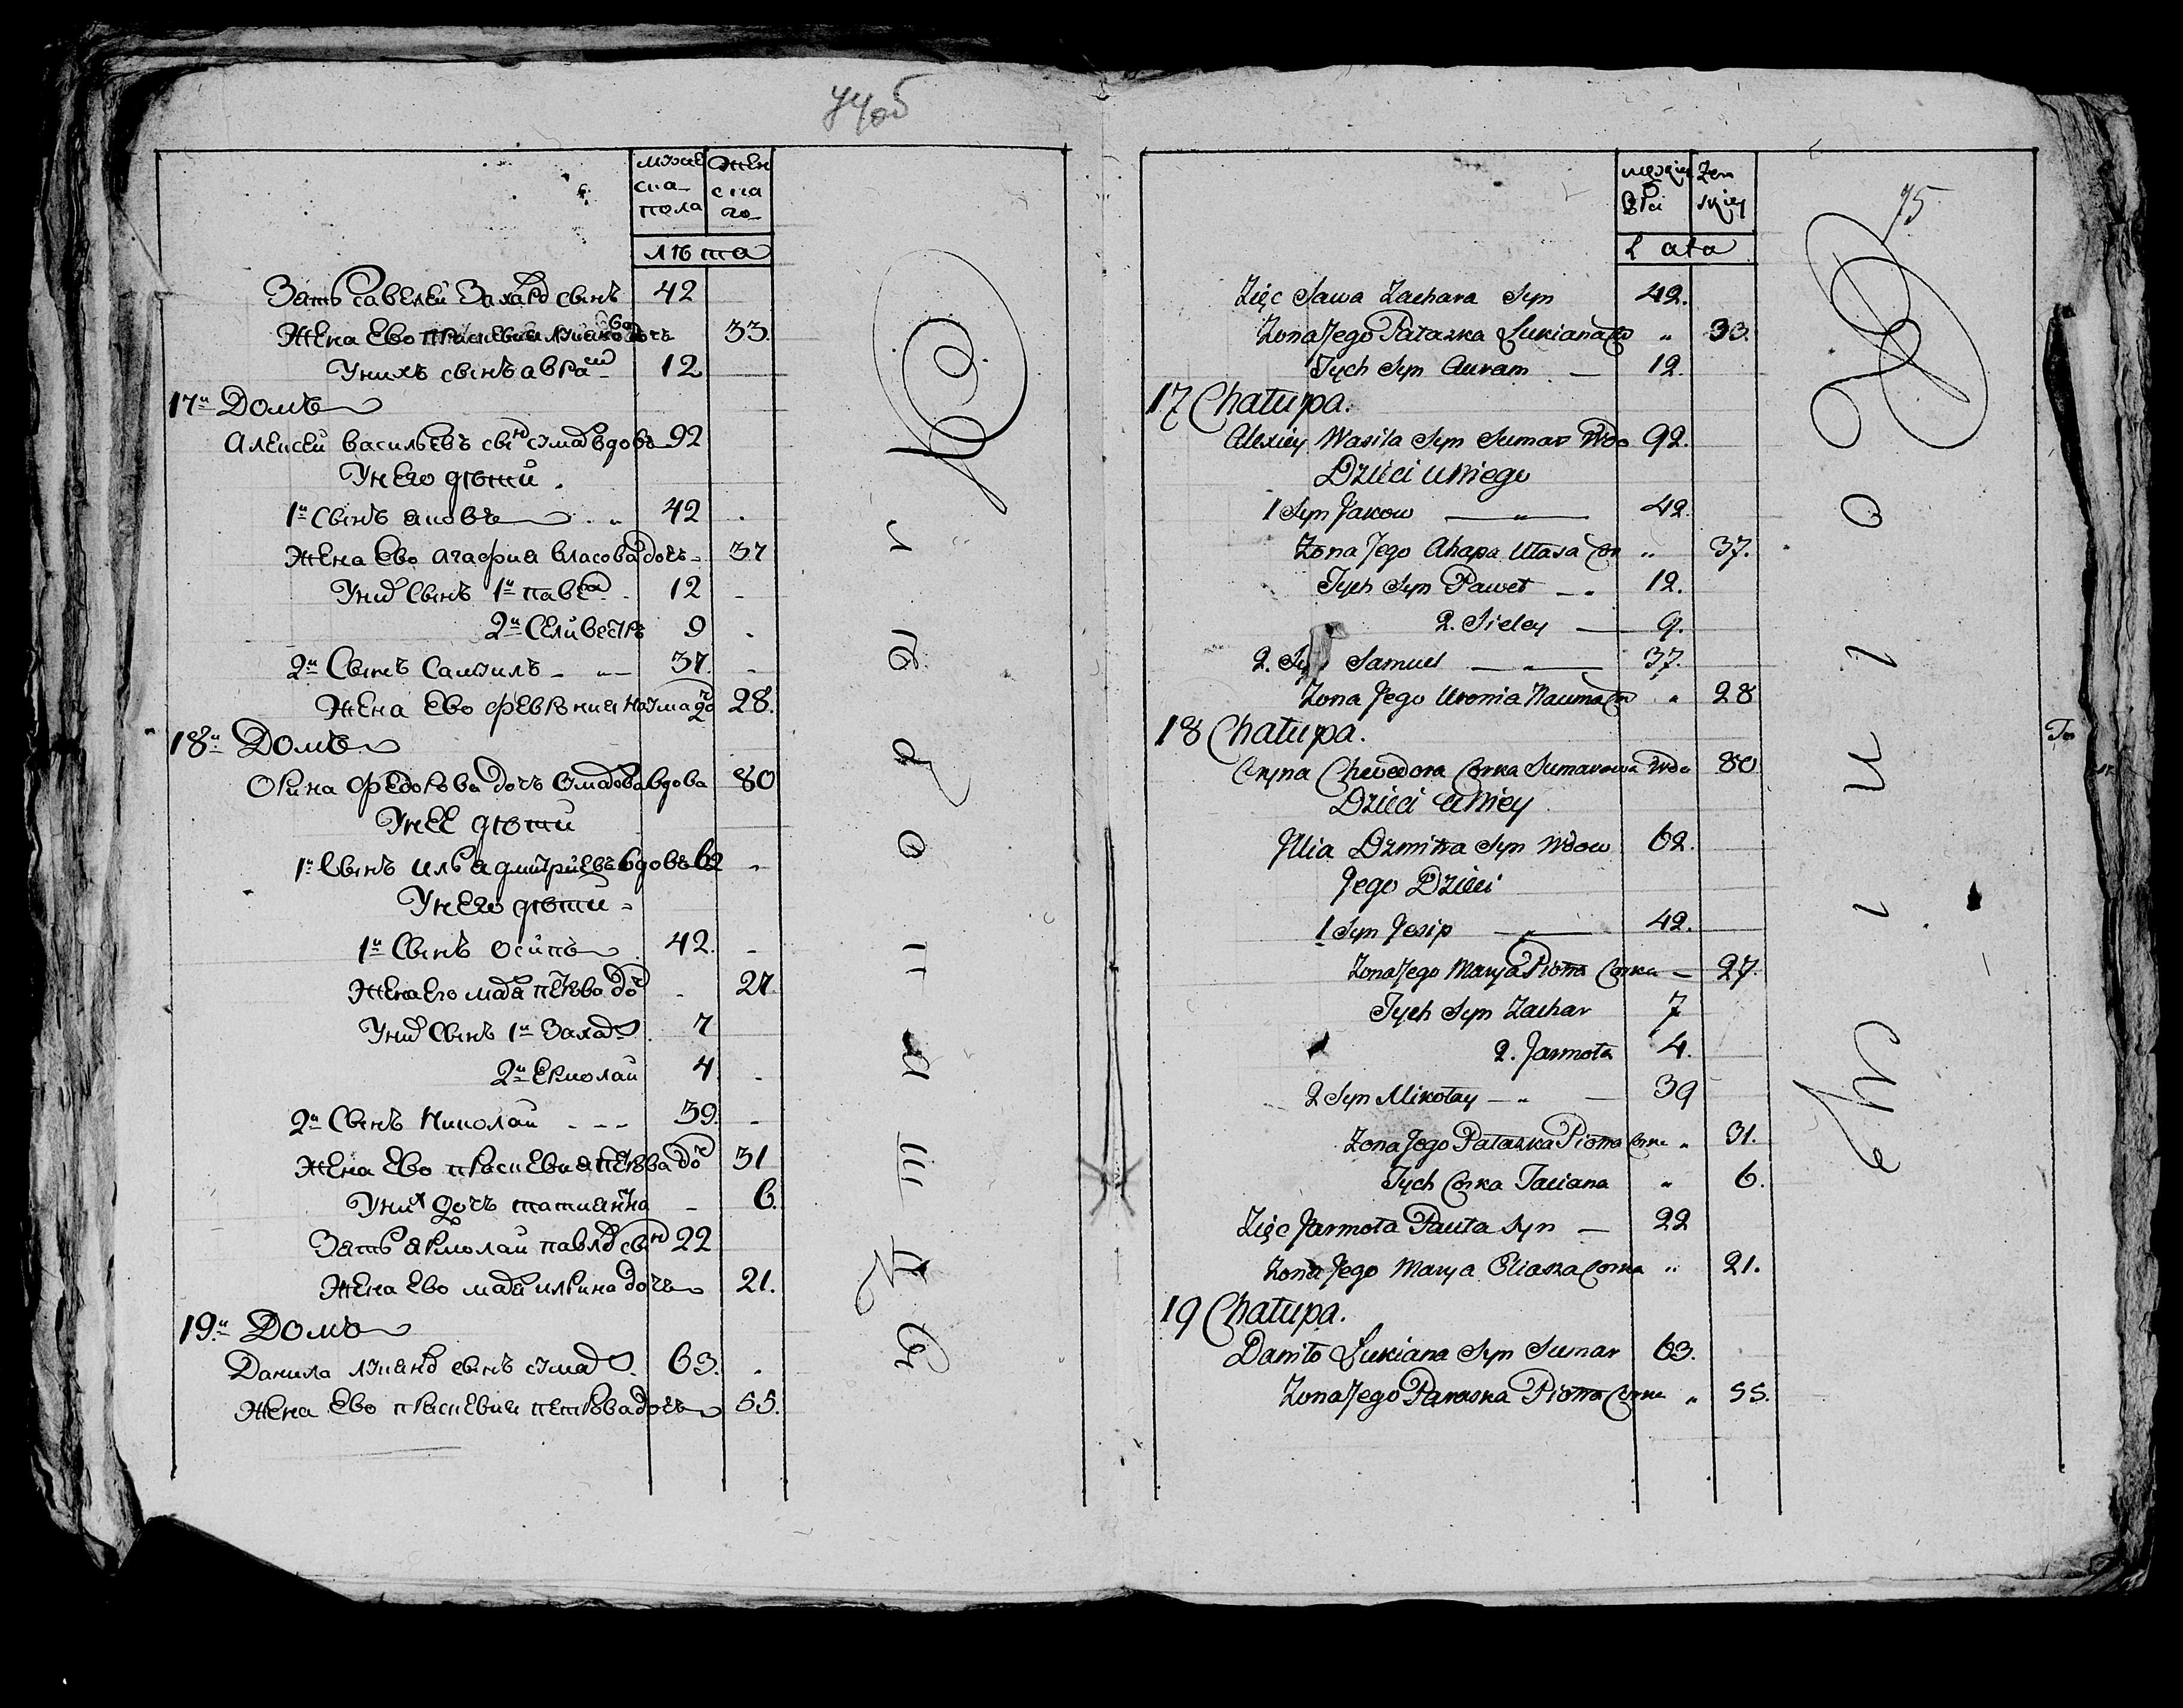 74об
мужеска пола
женска го
лѣта
Зять Савелей Захаров сынъ 42
Жена ево Прасковия Лукянова дочь 33.
У нихъ сынъ Аврам 12
17й Домъ
Алексей Васильевъ сын Сумар вдовъ 92
У него дѣти
1й Сынъ Яковъ 42
Жена ево Агафиа Власова дочь 37
У них Сынъ 1й Павел 12
2й Селивестръ 9
2й Сынъ Самуилъ 37.
Жена ево Феврониа Наума доч 28.
18й Домъ
Орина Федорова дочь Сумарова вдова 80
У нее дѣти
1й Сынъ Илья Дмитриевъ вдовъ 62
У него дѣти
1й Сынъ Осипъ 42.
Жена его Маря Петрова доч 27.
У них Сынъ 1й Захар 7
2й Ермолай 4
2й Сынъ Николай 39.
Жена ево Прасковиа Петрова доч 31
У них дочь Татианна 6.
Зять Ярмолай Павлов сын 22
Жена ево Маря Илина дочь 21.
19й Домъ
Данила Лукянов сынъ Сумар 63.
Жена ево Прасковия Петрова дочь 55.
75
męskiey Płci
Żenskiey
Lata
Zięc Sawa Zachara Syn 42.
Zona Jego Paraska Łukiana Cor " 33.
Tych Syn Auram — 12.
17 Chałupa.
Alexiey Wasila Syn Sumar Wdo 92.
Dzieci u Niego
1 Syn Jakow — " — 42.
Zona Jego Ahapa Ułasa Cor " 37.
Tych Syn Paweł — " 12.
2. Sieley — 9.
2. Syn Samuel — " — 37.
Zona Jego Uronia Nauma Cor " 28
18 Chałupa.
Oryna Chwedora Corka Sumarowa Wdo 80
Dzieci u Niey
Jllia Dzmitra Syn Wdow 62.
Jego Dzieci
1 Syn Josip — " — 42.
Zona Jego Marya Piotra Corka — 27.
Tych Syn Zachar 7
2. Jarmoła 4.
2 Syn Mikołay — " — 39
Zona Jego Paraska Piotra Corka " 31.
Tych Corka Taciana " 6.
Zięc Jarmoła Pauła Syn — 22
Zona Jego Marya Eliasza Corka " 21.
19 Chałupa.
Daniło Łukiana Syn Sumar 63.
Zona Jego Paraska Piotra Corka " 55.